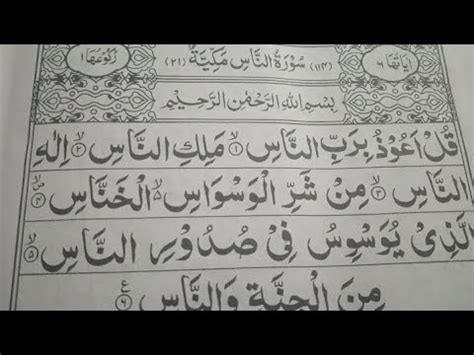 اٰیَاتُهَا ۶ (۱۱۴) سُوْرَةُ النَّاسِ مَكِّیَّةٌ (۲۱) رُكُوْعُهَا ۱
بِسْمِ اللّٰهِ الرَّحْمٰنِ الرَّحِیْمِ
قُلْ اَعُوْذُ بِرَبِّ النَّاسِ ۙ﴿۱﴾ مَلِكِ النَّاسِ ۙ﴿۲﴾ اِلٰهِ
النَّاسِ ۙ﴿۳﴾ مِنْ شَرِّ الْوَسْوَاسِ ۙ۬ الْخَنَّاسِ ۪ۙ﴿۴﴾
الَّذِیْ یُوَسْوِسُ فِیْ صُدُوْرِ النَّاسِ ۙ﴿۵﴾
مِنَ الْجِنَّةِ وَالنَّاسِ ﴿۶﴾ ع